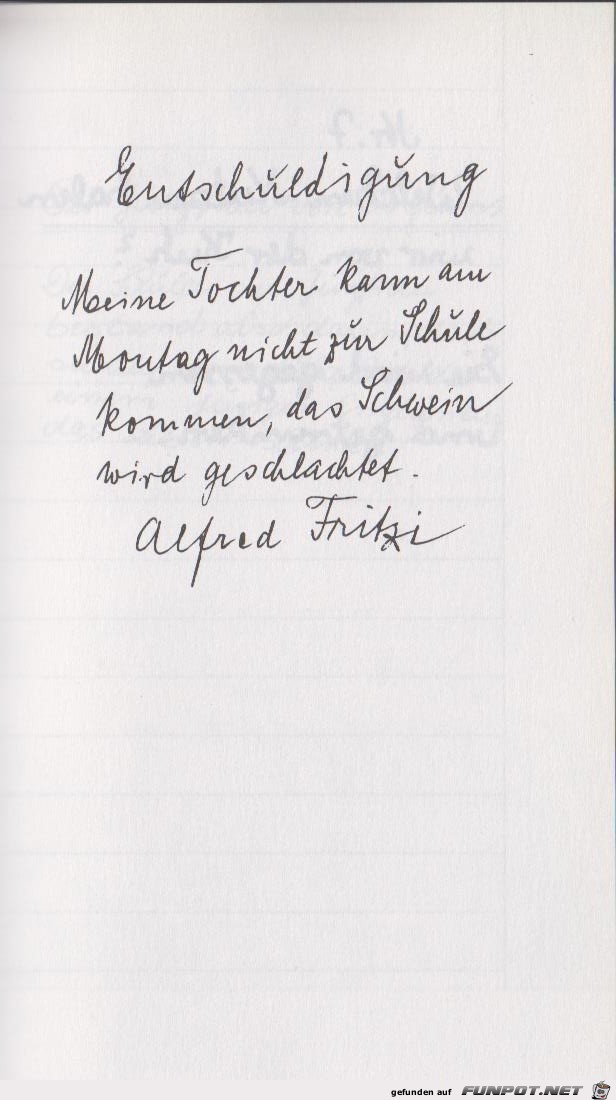 Entschuldigung
Meine Tochter kann am
Montag nicht zur Schule
kommen, das Schwein
wird geschlachtet.
Alfred Fritzi
gefunden auf FUNPOT.NET